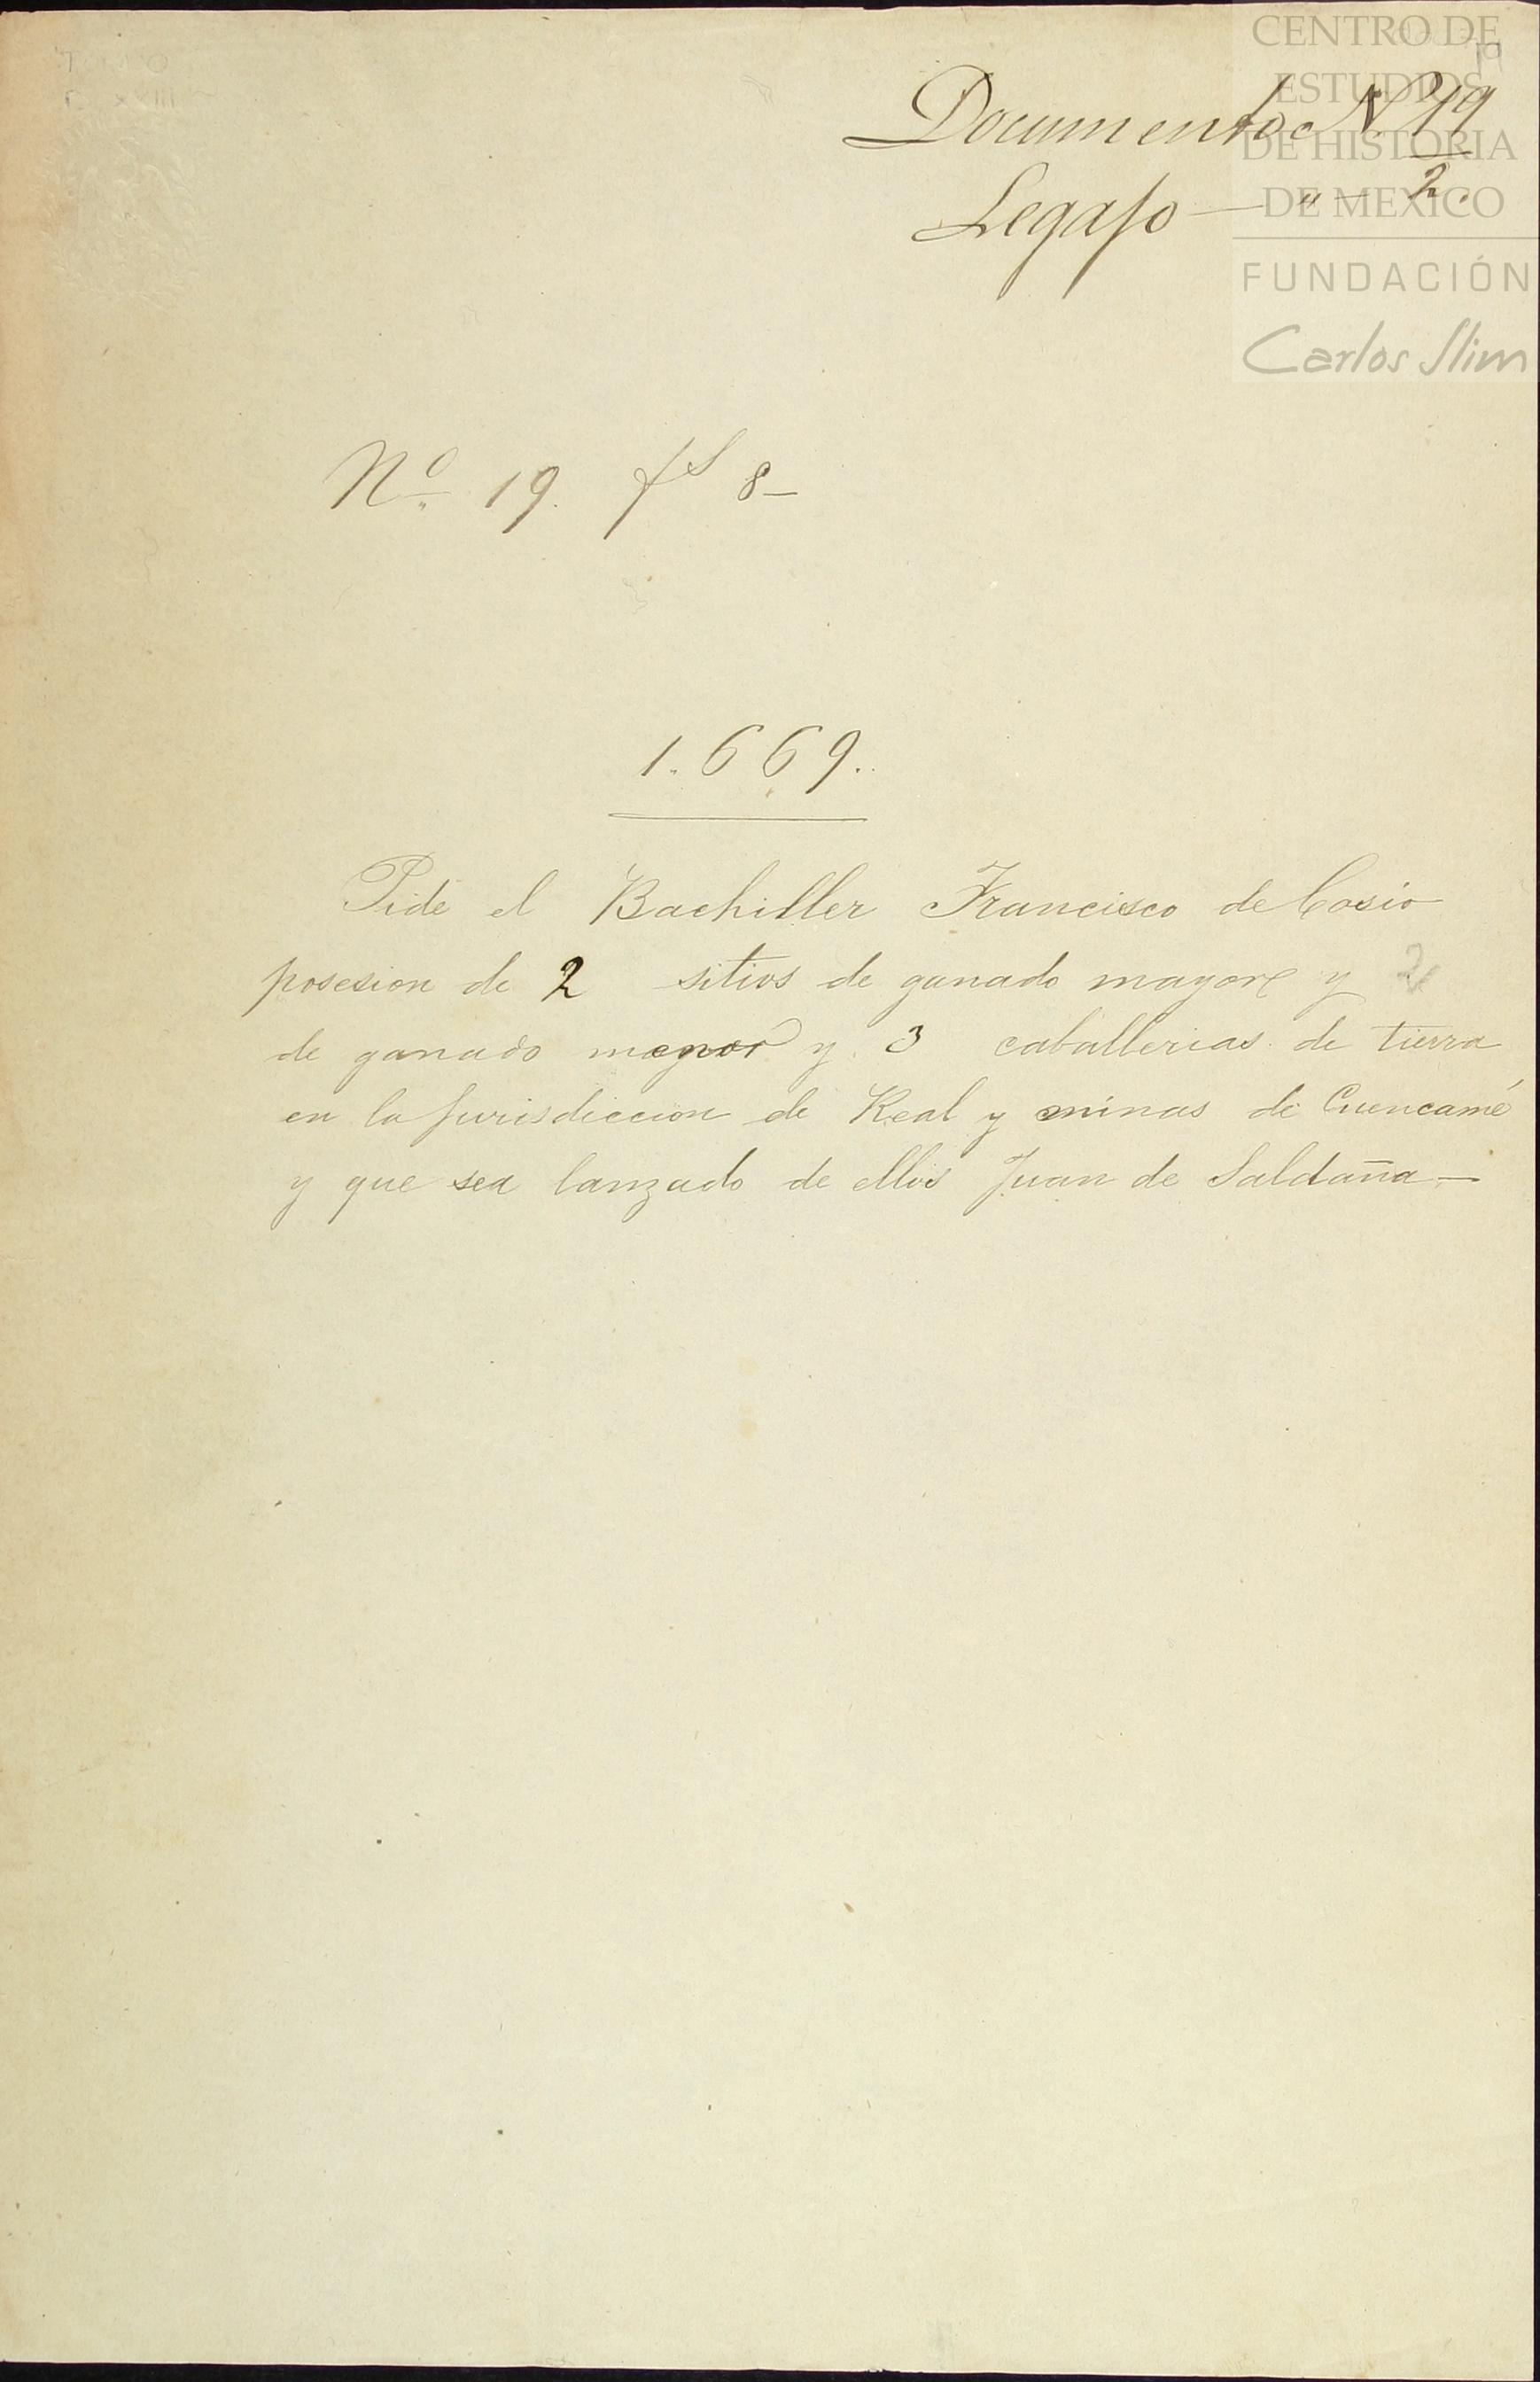 CENTRO DE
ESTUDIOS
DE HISTORIA
DE MEXICO
FUNDACIÓN
Carlos Slim
19
Documento N 19
Legajo — " — 2.
Nº 19. fs 8—
1.669.
Pide el Bachiller Francisco de Cosio
posesion de 2 sitios de ganado mayor y 2
de ganado menor y 3 caballerias de tierra
en la jurisdiccion de Real y minas de Cuencamé
y que sea lanzado de ellos Juan de Saldaña—